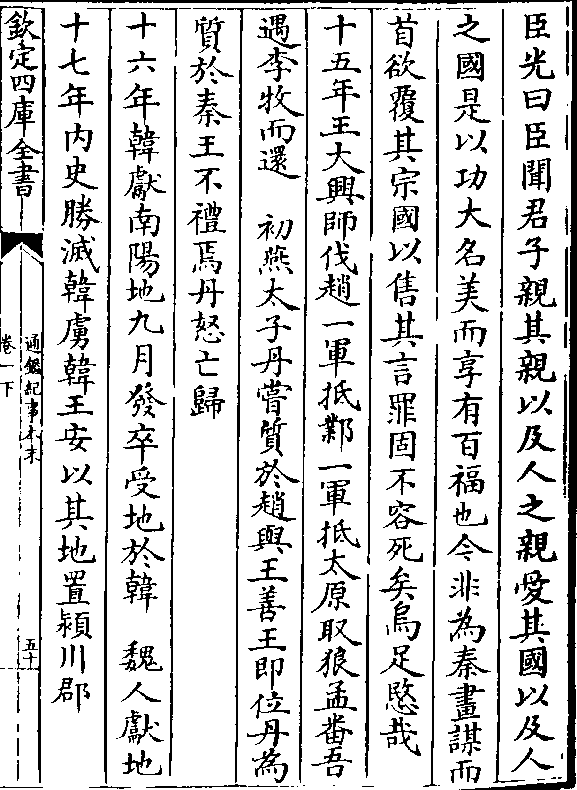 臣光曰臣聞君子親其親以及人之親愛其國以及人
之國是以功大名美而享有百福也今非為秦畫謀而
首欲覆其宗國以售其言罪固不容死矣烏足愍哉
十五年王大興師伐趙一軍抵鄴一軍抵太原取狼孟番吾
遇李牧而還　初燕太子丹嘗質於趙與王善王即位丹為
質於秦王不禮焉丹怒亡歸
十六年韓獻南陽地九月發卒受地於韓　魏人獻地
十七年内史勝滅韓虜韓王安以其地置潁川郡
欽定四庫全書
通鑑紀事本末
卷一下
五十